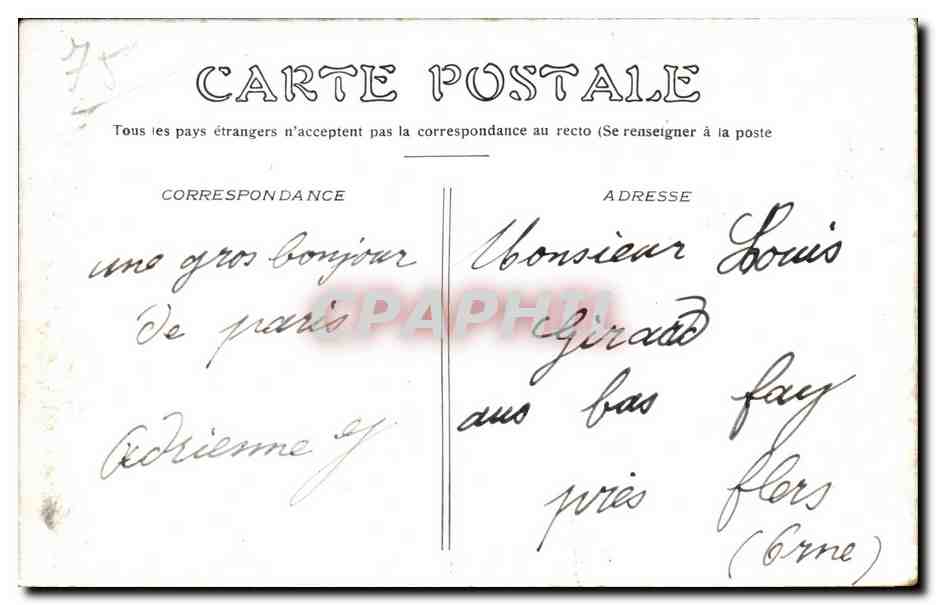 75
CARTE POSTALE
Tous les pays étrangers n'acceptent pas la correspondance au recto (Se renseigner à la poste
CORRESPONDANCE
une gros bonjour
de paris
Adrienne
ADRESSE
Monsieur Louis
Girard
aus bas fay
près flers
(Orne)
CPAPHIL